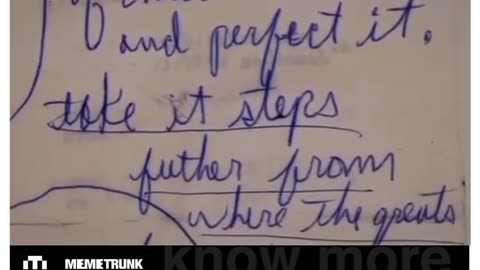 and perfect it.
take it steps
futher from
where the greats
MEMETRUNK
know more